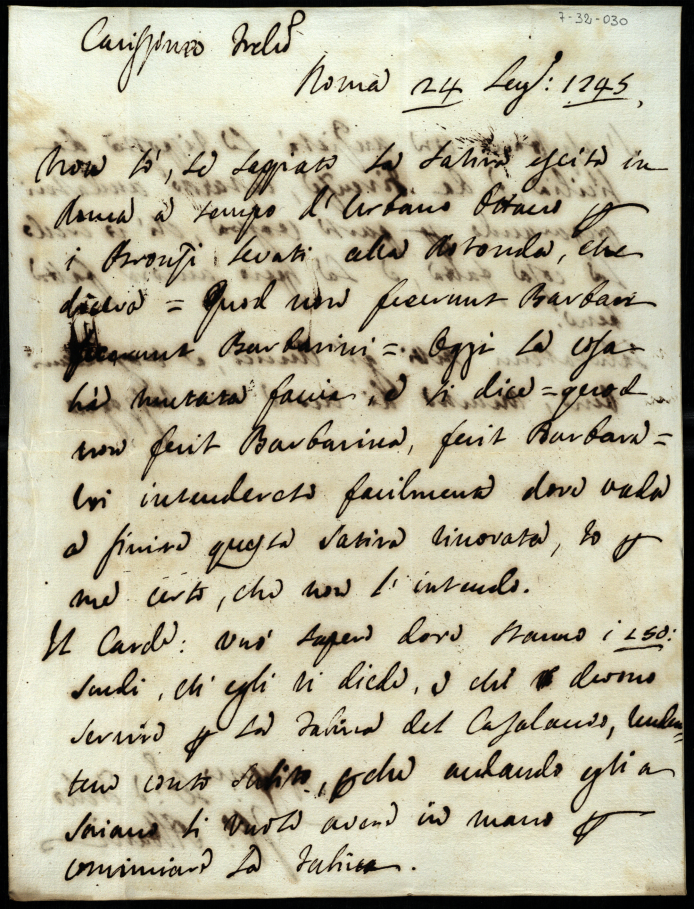 7-32-030
Carissimo Frello
Roma 24 Legl: 1745.
Non sò, se sappiate la satira escita in
Roma a tempo d'Urbano Ottavo p
i Bronzi levati alla Rotonda, che
diceva = Quod non fecerunt Barbari
fecerunt Barbarini = Oggi la cosa
hà mutata faccia, e si dice = quod
non fecit Barbarina, fecit Barbara =
Voi intenderete facilmente dove vada
a finire questa satira rinovata, Io p
me certo, che non l'intendo.
Il Cardle: vuol sapere dove stanno i 250:
scudi, che egli vi diede, e che devono
servire p la fabrica del Casalano,
tene conto subito, pche andando egli a
Soriano li vuole avere in mano p
cominciare la fabrica.